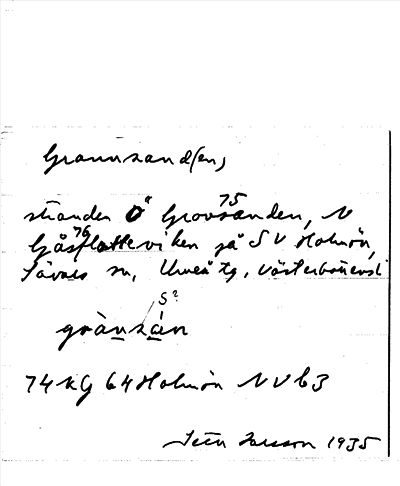 Grannsand(en)
75
stranden Ö Grovsanden, N
76
Gåsflatteviken på SV Holmön,
Sävars sn, Umeå tg, Västerbotten
S?
grànsán
74 KG 64 Holmön NV b3
Sten Larsson 1935